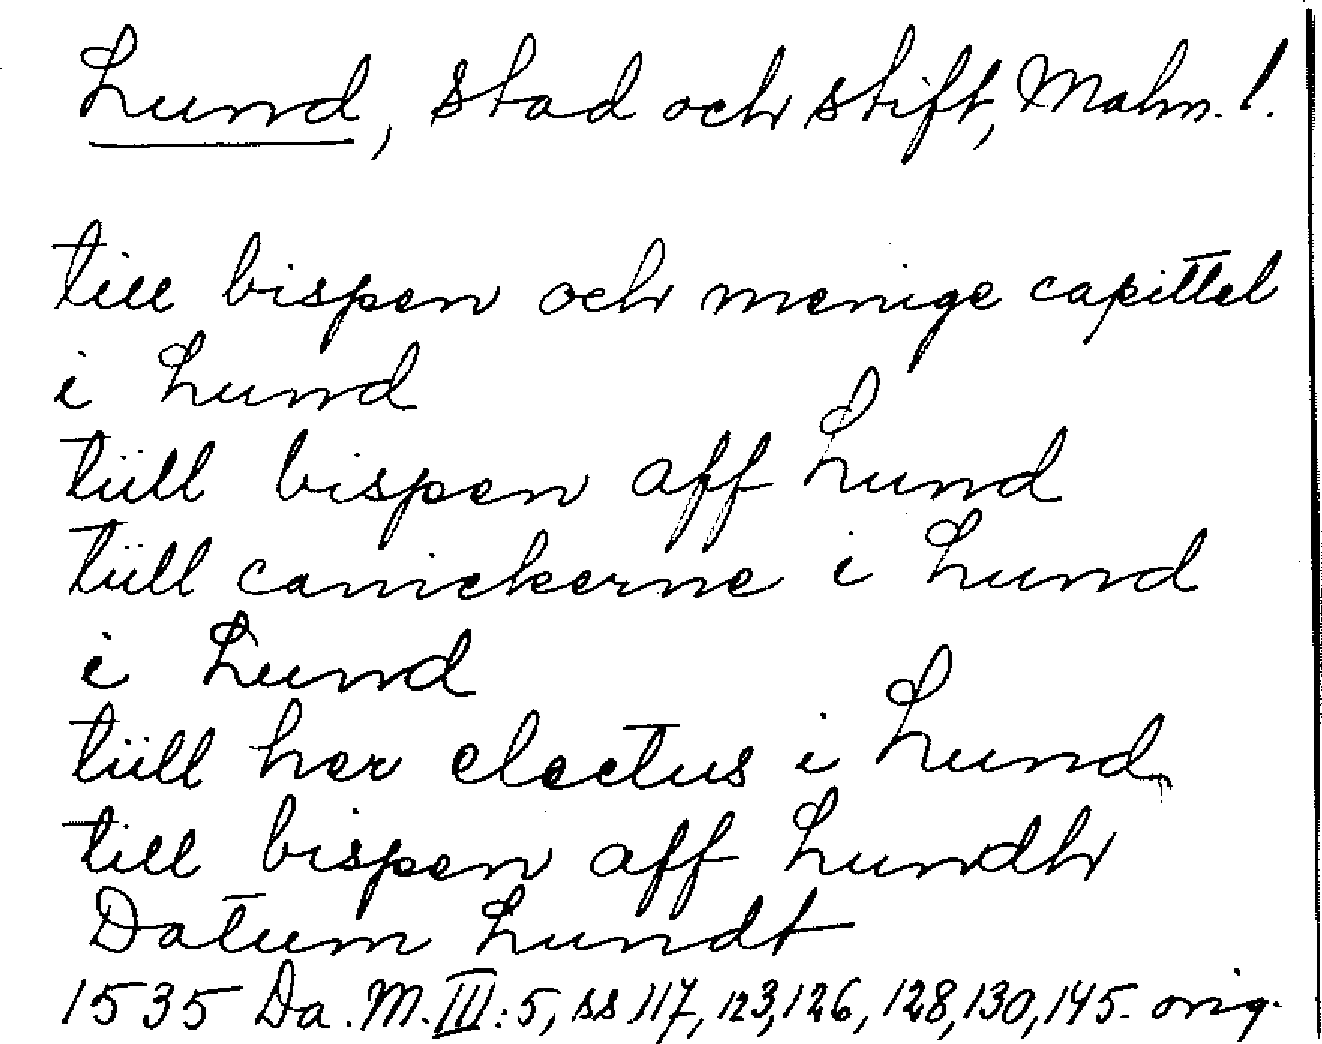 Lund, stad och stift, Malm. l.
till bispen och menige capittel
i Lund
tüll bispen aff Lund
tüll canickerne i Lund
i Lund
tüll her electus i Lund
till bispen aff Lundh
Datum Lundt
1535 Da. M. III: 5, ss 117, 123, 126, 128, 130, 145. orig.